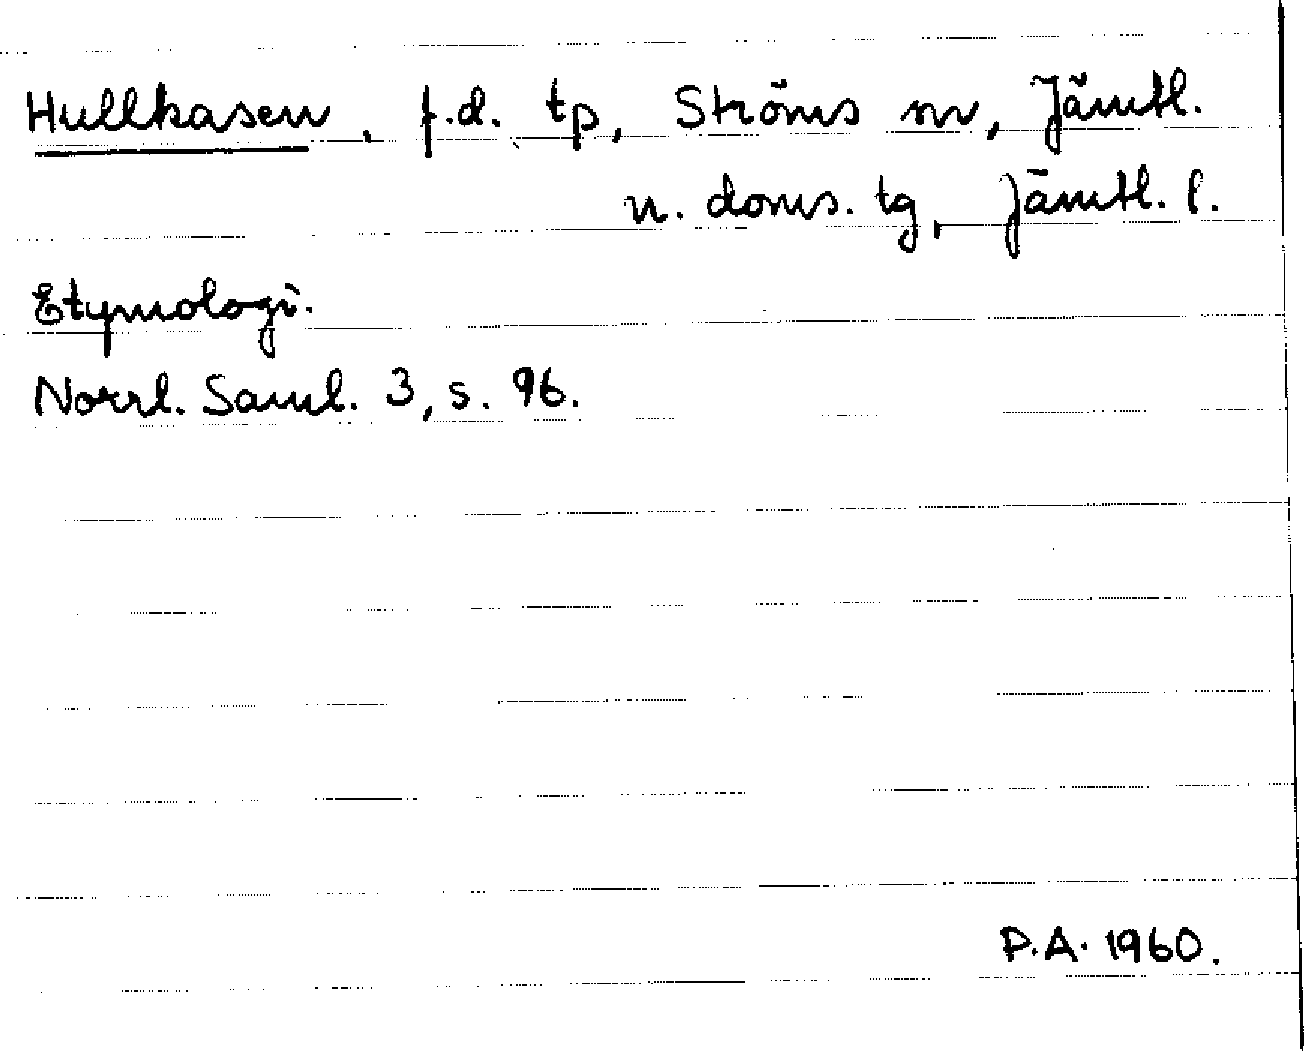 Hullkasen, f.d. tp, Ströms sn, Jämtl.
n. doms. tg, Jämtl. l.
Etymologi.
Norrl. Saml. 3, s. 96.
P.A. 1960.